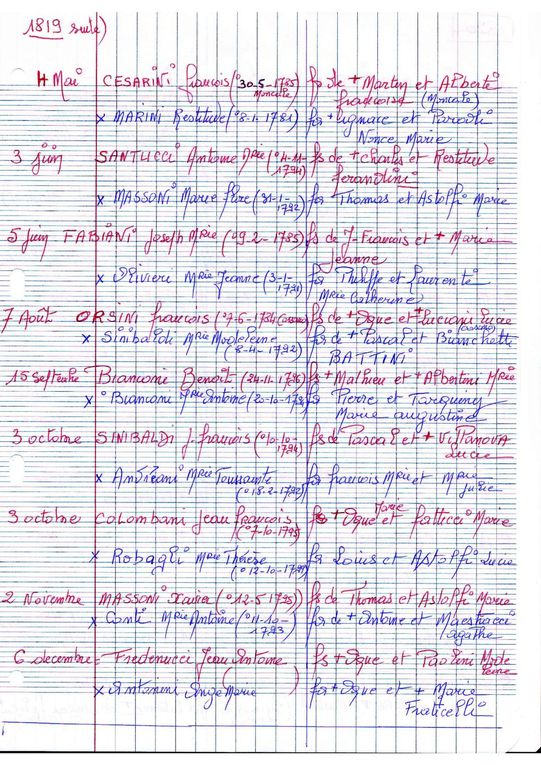 1819 suite)
4 Mai CESARINI françois (° 30-5-1785) fs de + Martin et Alberti
Moncale françoise (Moncale)
x MARINI Restitude (°8-1-1781) fa + ignace et Parodi
Nonce Marie
3 juin SANTUCCI Antoine Mrie (°4-11- fs de + charles et Restitude
1794) ferandini
x MASSONI Marie flore (°31-1- fa Thomas et Astolfi Marie
1792)
5 juin FABIANI Joseph Mrie (°9-2-1785) fs de J-François et + Maria
Jeanne
x Olivieri Mrie Jeanne (°3-1- fa Philippe et Laurenti
1791) Mrie Catherine
7 Août ORSINI françois (°7-6-1784 (cassano) fs de + Dque et + Luciani Lucie
(cassano)
x Sinibaldi Mrie Madeleine fa de + Pascal et Bianchetti
(8-4-1792) BATTINI
15 Septembre Bianconi Benoît (°24-11-1796) fs + Mathieu et + Albertini Mrie
x Bianconi Mrie Antoine (°20-10-179 fa Pierre et Tarquiny
Marie augustine
3 octobre SINIBALDI J. françois (°10-10- fs de Pascal et + VILLANOVA
1794) Lucie
x Andréani Mrie Toussainte fa françois Mrie et Mrie
(°18-2-1792) Julie
3 octobre COLOMBANI Jean françois fs + Dque Marie et fattacci Marie
(°7-10-1795)
x Robagli Mrie Thérèse fa Louis et Astolfi Lucie
(°12-10-179
2 Novembre MASSONI Xavier (°12-5 1795) fs de Thomas et Astolfi Marie
x Conti Mrie Antoine (°11-10- fa de + Antoine et Maestracci
1793) agathe
6 decembre = Fredenucci Jean Antoine fs + Dque et Paolini Made
( ) leine
x Antonini Ange Marie fa + Dque et + Marie
Fraticelli